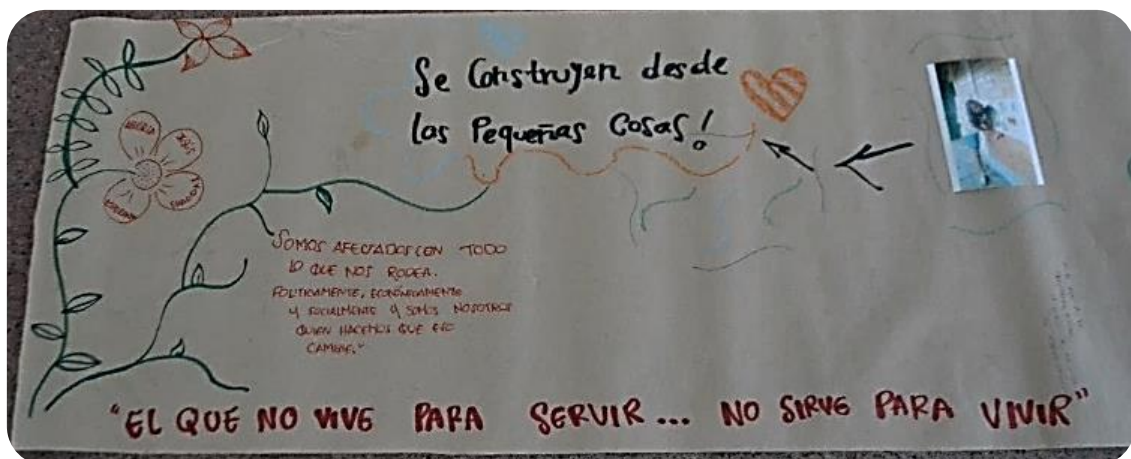 Se Construyen desde
las Pequeñas Cosas!
SOMOS AFECTADOS CON TODO
LO QUE NOS RODEA.
POLITICAMENTE, ECONÓMICAMENTE
Y SOCIALMENTE Y SOMOS NOSOTROS
QUIEN HACEMOS QUE ESO
CAMBIE."
"EL QUE NO VIVE PARA SERVIR... NO SIRVE PARA VIVIR"